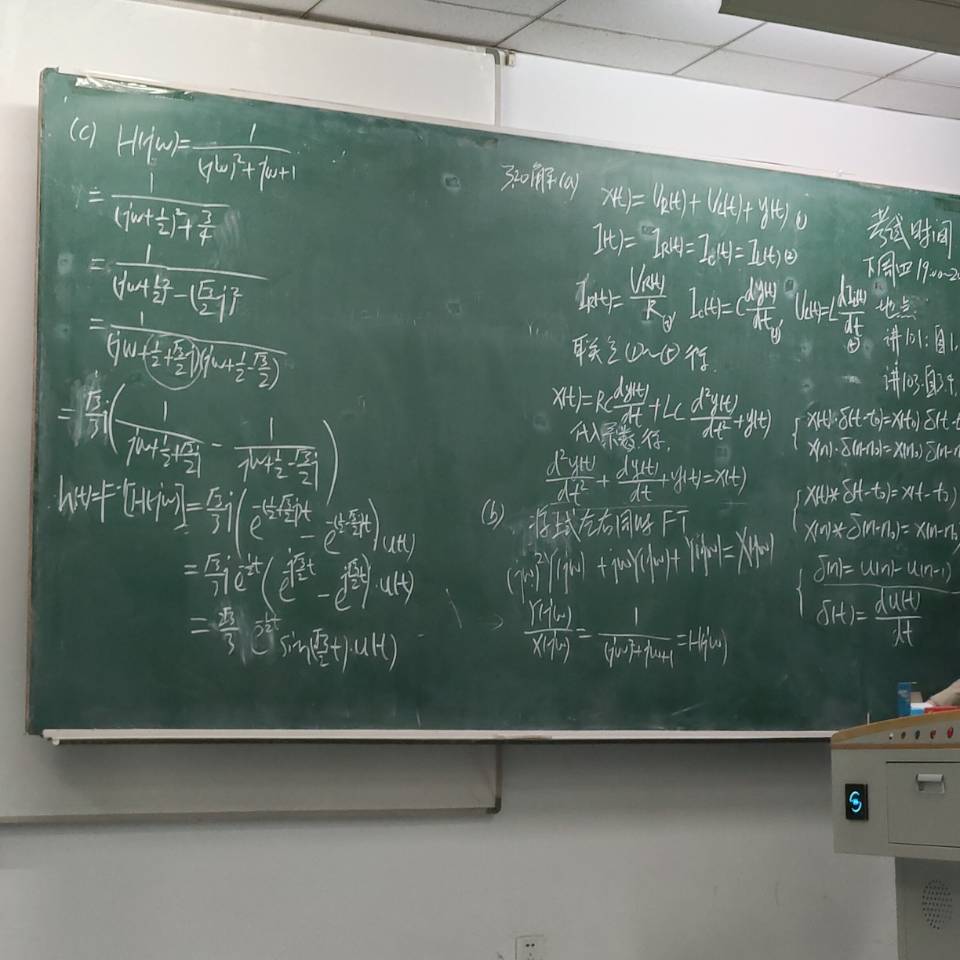 (c) H(jw)=1/((jw)²+jw+1)
=1/((jw+1/2)²+3/4)
=1/((jw+1/2)²-(√3/2 j)²)
=1/((jw+1/2+√3/2 j)(jw+1/2-√3/2))
=√3/3 j(1/(jw+1/2+√3/2 j) - 1/(jw+1/2-√3/2 j))
h(t)=F⁻¹[H(jw)]=√3/3 j(e^-(1/2+√3/2 j)t - e^-(1/2-√3/2 j)t)u(t)
=√3/3 j e^-1/2t (e^-j√3/2 t - e^j√3/2 t)·u(t)
=2√3/3 e^-1/2t sin(√3/2 t)·u(t)
3.20解(a)
x(t)=VR(t)+VL(t)+y(t) ①
I(t)=IR(t)=Ic(t)=IL(t) ②
IR(t)=VR(t)/R ③ Ic(t)=C dy(t)/dt ④ VL(t)=L dIL(t)/dt ⑤
联立①~⑤得
x(t)=RC dy(t)/dt+LC d²y(t)/dt²+y(t)
代入系数得
d²y(t)/dt²+dy(t)/dt+y(t)=x(t)
(b) 将上式左右同时FT
(jw)²Y(jw)+jwY(jw)+Y(jw)=X(jw)
Y(jw)/X(jw)=1/((jw)²+jw+1)=H(jw)
考试时间
下周四19:00~20
地点:
讲101:自1.
讲103:自39.
x(t)·δ(t-t₀)=x(t₀)δ(t-t
x(n)·δ(n-n₀)=x(n₀)δ(n-n
x(t)*δ(t-t₀)=x(t-t₀)
x(n)*δ(n-n₀)=x(n-n₀
δ(n)=u(n)-u(n-1)
δ(t)=du(t)/dt